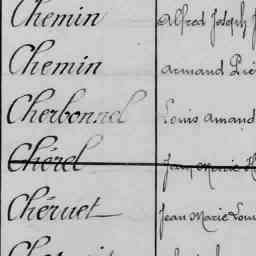 Chemin Alfred Joseph
Chemin Armand
Cherbonnel Louis Amand
Chérel Jean Marie
Chéruet Jean Marie Loui